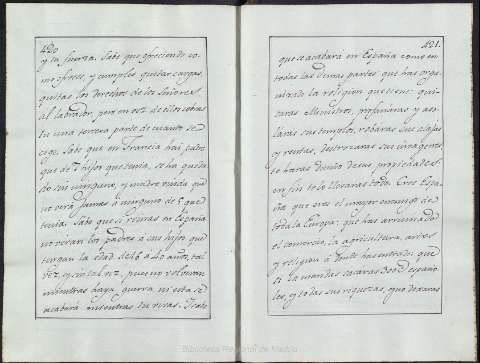 420
y tu fuerza. Sabe que ofreciendo co-
mo ofreces, y cumples, quitar cargas,
quitas los derechos de los Señores
al labrador, pero en vez de ellos cobras
tu una tercera parte de cuanto se
coge. Sabe que en Francia hai padre
que de 7 hijos que tenia, se ha queda-
do sin ninguno, y madre viuda que
no verá jamas á ninguno de 5 que
tenia. Sabe que si reinas en España
no veran los padres a sus hijos que
tengan la edad de 16 a 40 años, tal
vez, y sin tal vez, pues no volveran
mientras haya guerra, ni esta se
acabará mientras tu vivas. Sabe
421.
que se acabará en España como en
todas las demas partes que has orga-
nizado la religion que tiene: qui-
taras Ministros, profanaras y aso-
laras sus templos, robaras sus alajas
y rentas, destrozaras sus imagenes
te haras dueño de sus propiedades
en fin te lo llevaras todo. Cree Espa-
ña que eres el mayor enemigo de
toda la Europa; que has arruinado
el comercio, la agricultura, artes
y religion á donde has entrado: que
si la mandas sacaras de ella españo-
les, y todas sus riquezas, que dexaras
Biblioteca Regional de Madrid